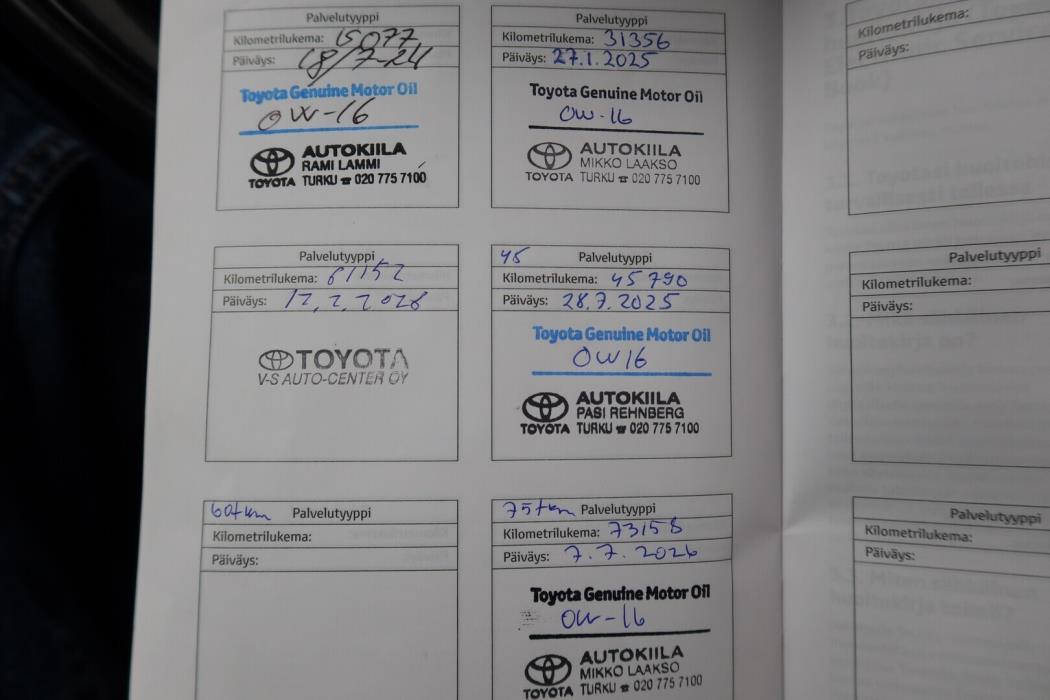 Palvelutyyppi
Kilometrilukema: 15077
Päiväys: 18/7-24
Toyota Genuine Motor Oil
OW-16
AUTOKIILA
RAMI LAMMI
TOYOTA TURKU ☎ 020 775 7100
Palvelutyyppi
Kilometrilukema: 31356
Päiväys: 27.1.2025
Toyota Genuine Motor Oil
OW-16
AUTOKIILA
MIKKO LAAKSO
TOYOTA TURKU ☎ 020 775 7100
Palvelutyyppi
Kilometrilukema: 61152
Päiväys: 12.2.2026
TOYOTA
V-S AUTO-CENTER OY
45 Palvelutyyppi
Kilometrilukema: 45790
Päiväys: 28.7.2025
Toyota Genuine Motor Oil
OW16
AUTOKIILA
PASI REHNBERG
TOYOTA TURKU ☎ 020 775 7100
60tkm Palvelutyyppi
Kilometrilukema:
Päiväys:
75tkm Palvelutyyppi
Kilometrilukema: 73158
Päiväys: 7.7.2026
Toyota Genuine Motor Oil
OW-16
AUTOKIILA
MIKKO LAAKSO
TOYOTA TURKU ☎ 020 775 7100
Kilometrilukema:
Päiväys:
Palvelutyyppi
Kilometrilukema:
Päiväys:
Palvelutyyppi
Kilometrilukema:
Päiväys: